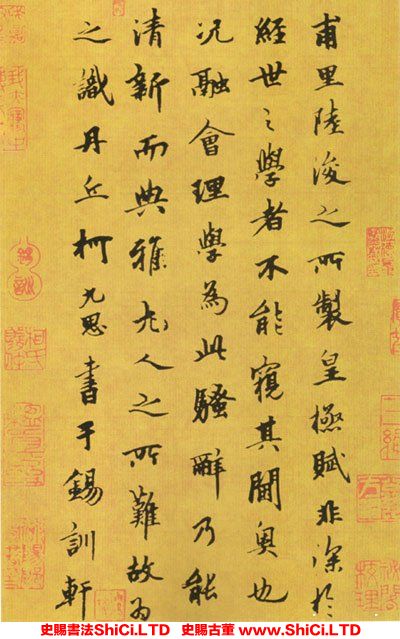 甫里陸浚之所製皇極賦非深於
經世之學者不能窺其閫奧也
况融會理學為此騷辭乃能
清新而典雅尤人之所難故為
之識丹丘柯九思書于錫訓軒
史賜書法ShiCi.LTD 史賜古董 www.ShiCi.LTD